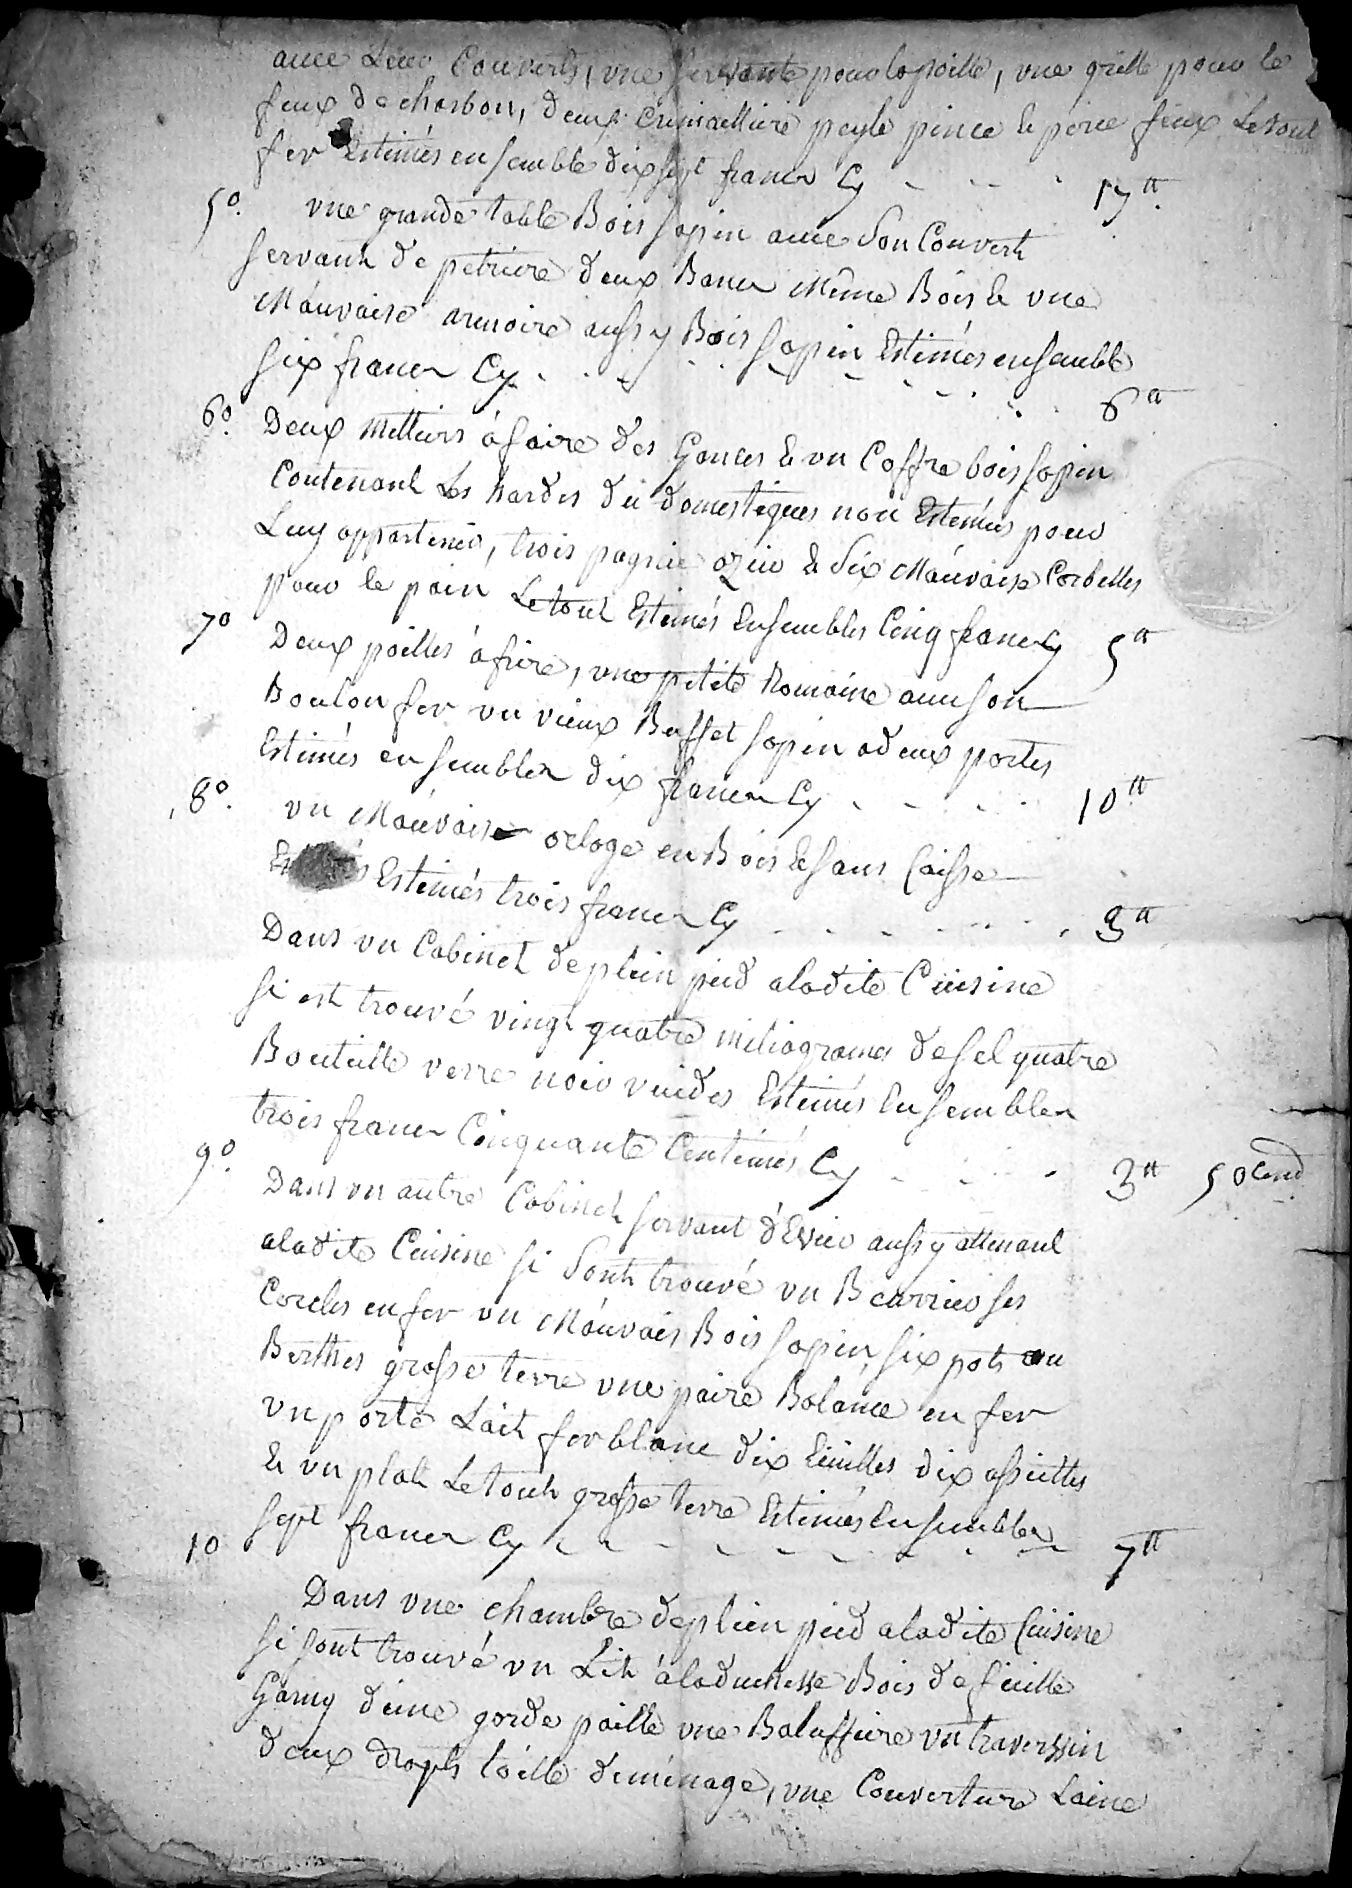 avec Leur Couverts, vne servante pour la poille, vne grille pour le
feux de charbon, deux Crimaillire peyle pince & perce feux Le tout
fer Estimés ensemble dix sept francs Cy - - - 17tt
5o. vne grande table Bois sapin avec Son Couvert
servant de petriere deux Bancs Même Bois & vne
Mauvaise armoire aussy Bois sapin Estimés ensemble
six francs Cy - - - 6tt
6o. Deux Mettiers à faire des Gances & un Coffre bois sapin
Contenant Les hardes du domestiques non Estimées pour
Luy appartenir, trois pagnie ozier & Six Mauvaise Corbelles
pour le pain Le tout Estimés Ensembles Cinq francs Cy 5tt
7o Deux poilles à frire, une petite Romaine avec son
Boulon fer vn vieux Buffet sapin a deux portes
Estimés en sembles dix francs Cy - - - 10tt
8o. vn Mauvaise orloge en Bois & sans Caisse
Estimés trois francs Cy - - - 3tt
Dans vn Cabinet de plein pied a la dite Cuisine
si est trouvé vingt quatre miliogrames de sel quatre
Bouteille verre noir vuides Estimés Ensembles
trois francs Cinquante Centimes Cy - - - 3tt 50 Cend
9o. Dans vn autre Cabinet servant d'Evier aussy attenant
a la dite Cuisine si Sont trouvé vn Beurrier ses
Cercles en fer vn Mauvais Bois sapin, six pots ou
Berthes grosse terre vne paire Balance en fer
vn porte Lait fer blanc dix Ecuilles dix assiettes
& vn plat Le tout grosse terre Estimés Ensembles
sept francs Cy - - - 7tt
10 Dans vne chambre de plein pied a la dite Cuisine
si sont trouvé vn Lit à la duchesse Bois de feuille
Garny d'une garde paille vne Balassiere vn traversin
deux draps toille de menage, vne Couverture Laine